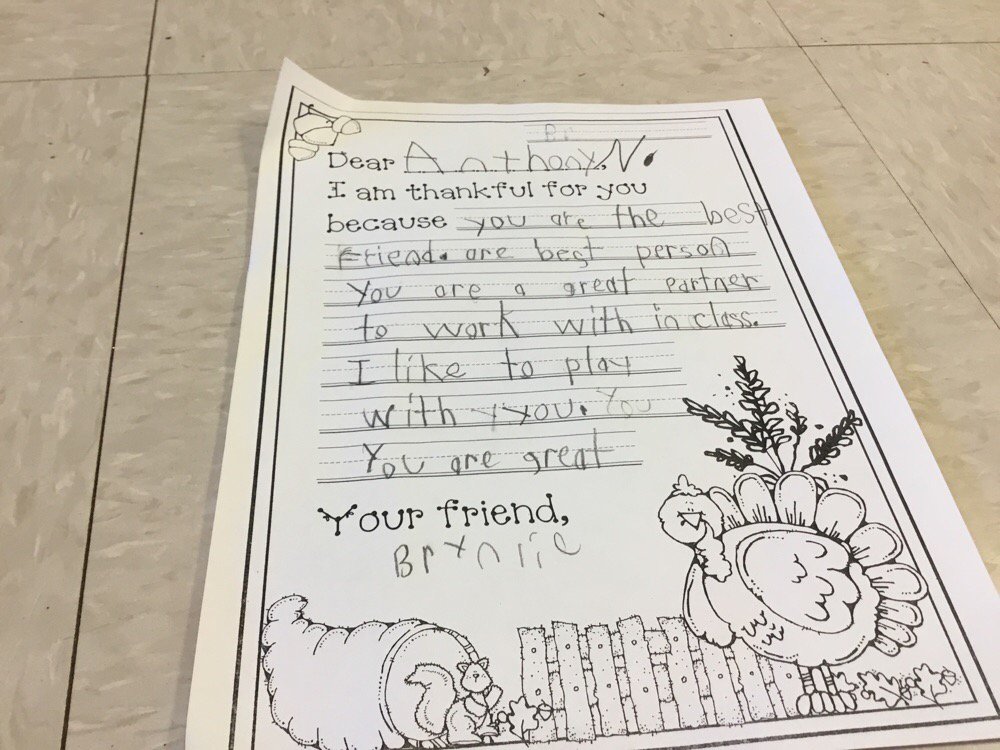 Br
Dear Anthony, N.
I am thankful for you
because you are the best
Friend. are best person
You are a great partner
to work with in class.
I like to play
with yyou. You
You are great
Your friend,
Brynlie